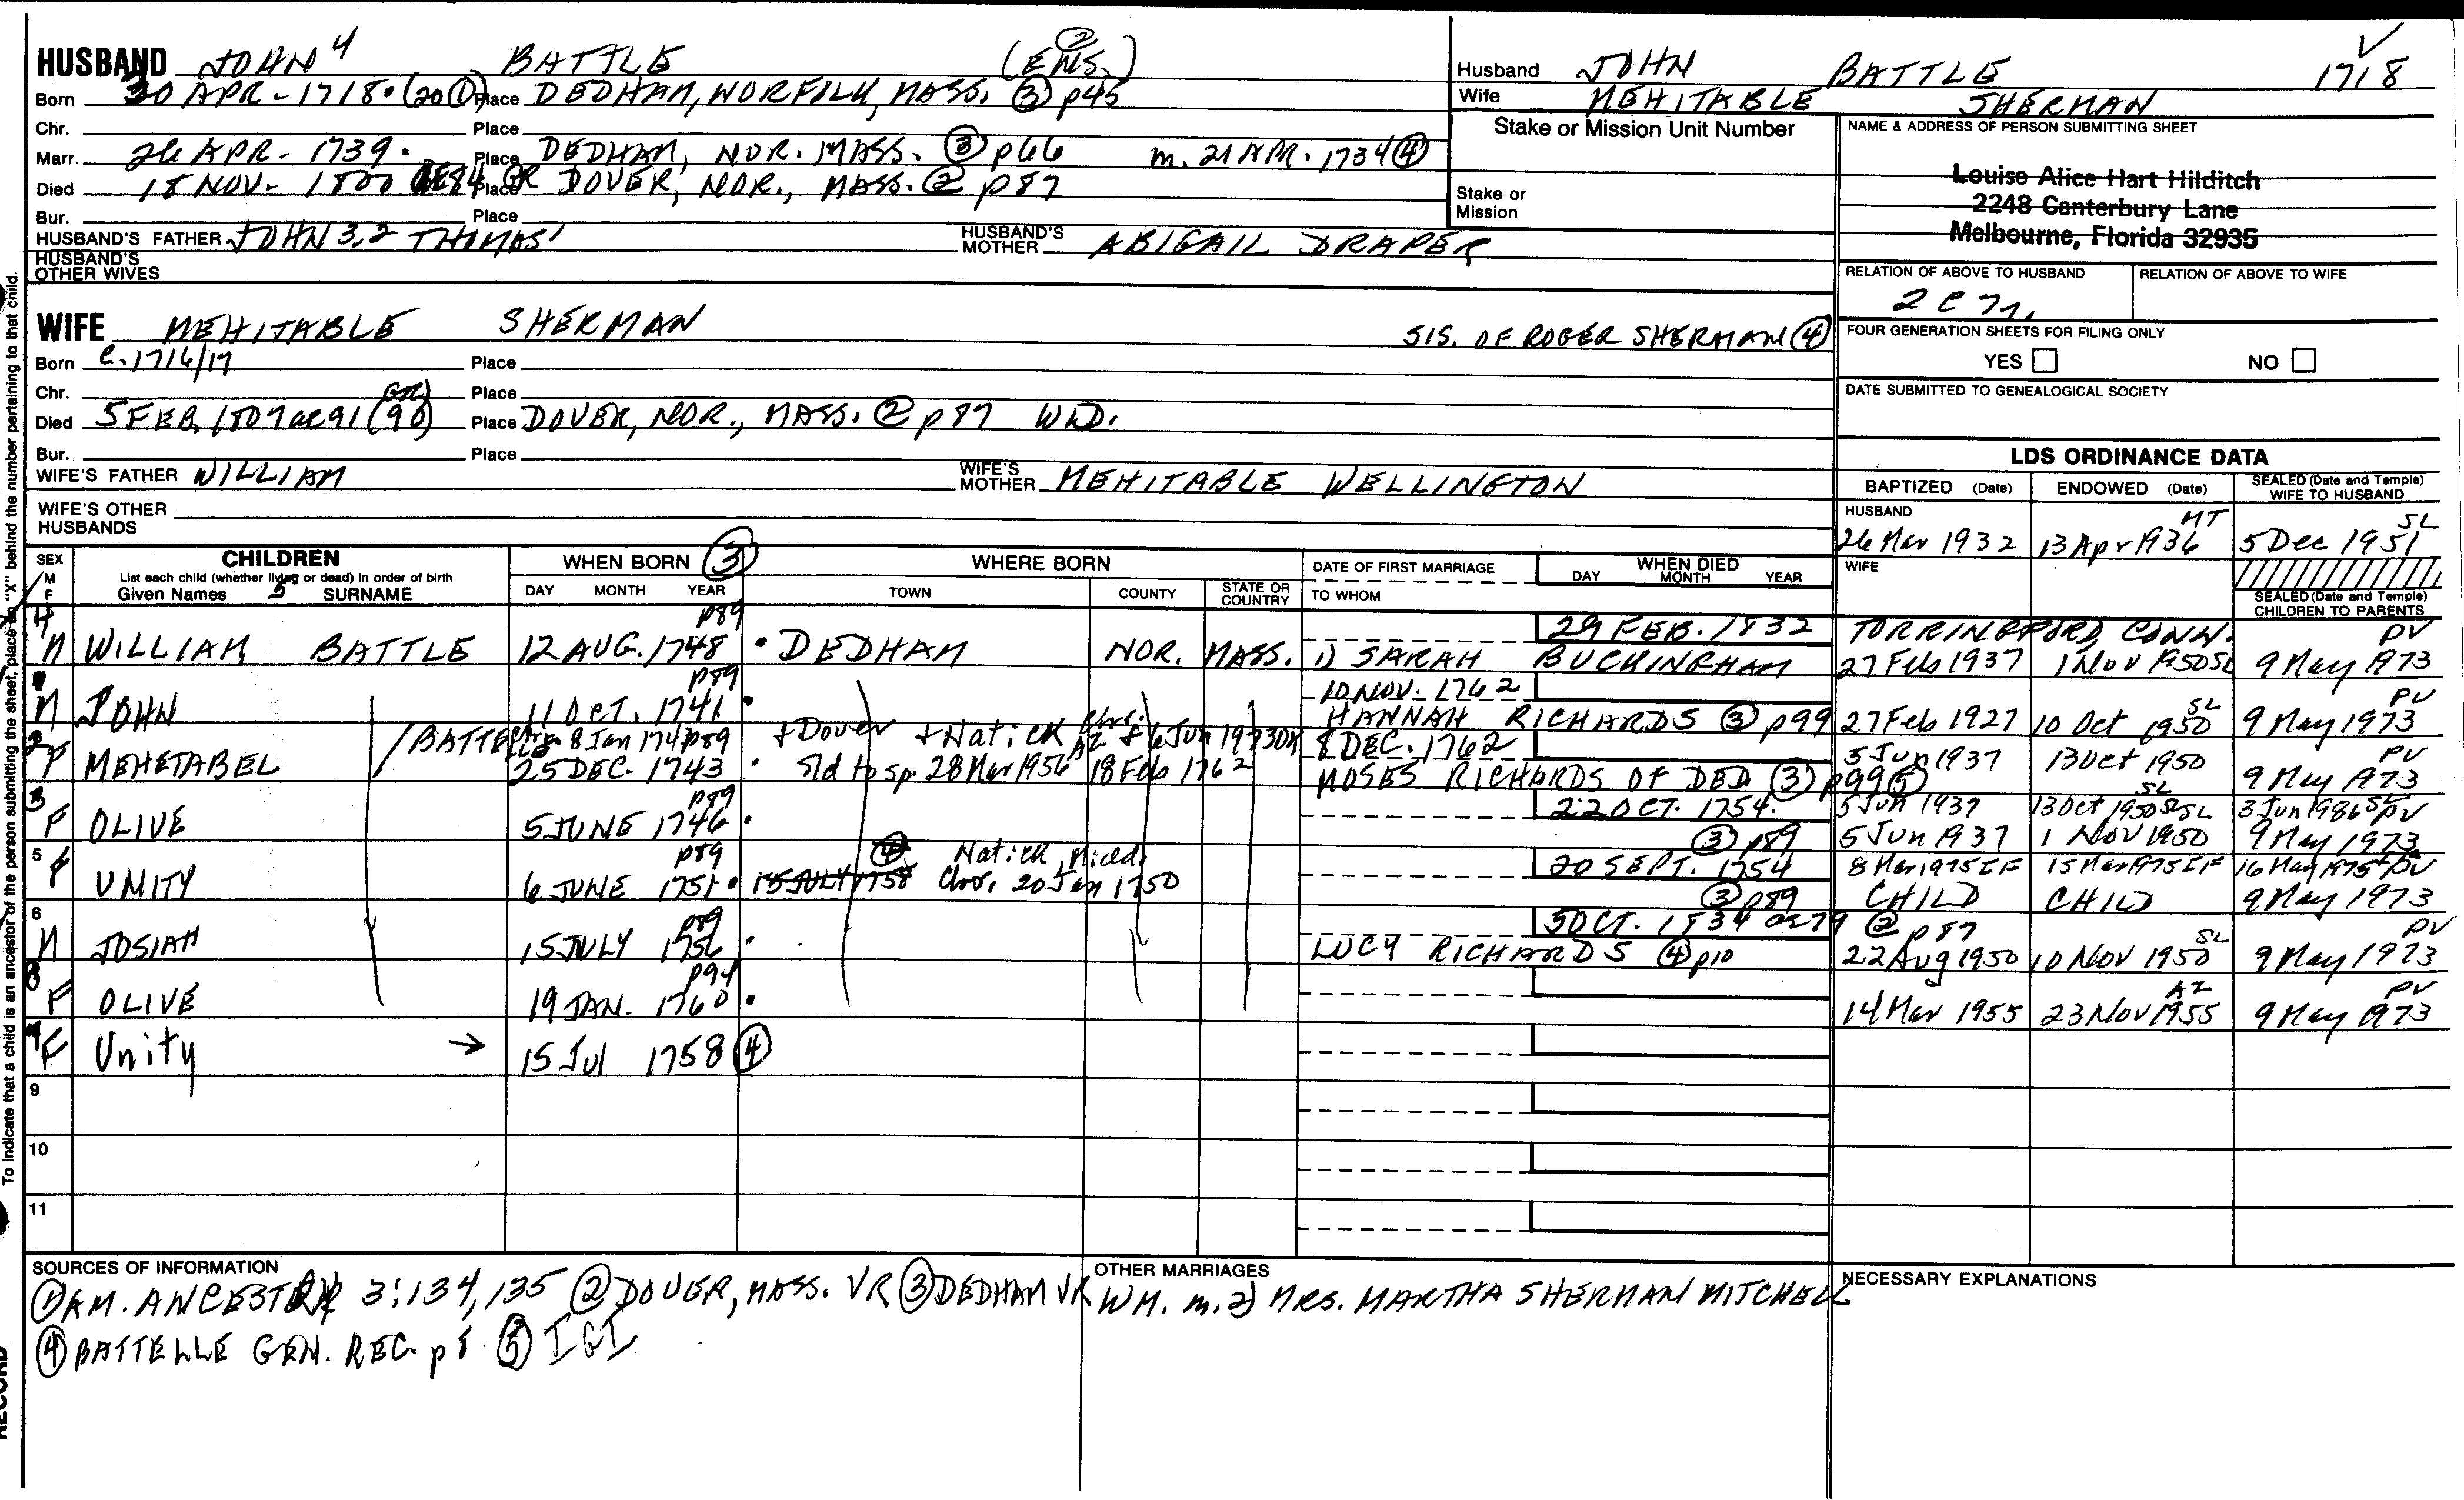 HUSBAND JOHN 4 BATTLE (ENS.) ②
Born 30 APR - 1718 • (20 ①) Place DEDHAM, NORFOLK, MASS. ③ p45
Chr. Place
Marr. 26 APR - 1739 • Place DEDHAM, NOR. MASS. ③ p66 m. 21 APR. 1734 ④
Died 18 NOV - 1800 AE84 GR Place DOVER, NOR., MASS. ② p87
Bur. Place
HUSBAND'S FATHER JOHN 3,2 THOMAS 1 HUSBAND'S MOTHER ABIGAIL DRAPER
HUSBAND'S OTHER WIVES
Husband JOHN BATTLE 1718
Wife MEHITABLE SHERMAN
Stake or Mission Unit Number
Stake or Mission
NAME & ADDRESS OF PERSON SUBMITTING SHEET
Louise Alice Hart Hilditch
2248 Canterbury Lane
Melbourne, Florida 32935
RELATION OF ABOVE TO HUSBAND RELATION OF ABOVE TO WIFE
2 C
FOUR GENERATION SHEETS FOR FILING ONLY
YES NO
DATE SUBMITTED TO GENEALOGICAL SOCIETY
WIFE MEHITABLE SHERMAN SIS. OF ROGER SHERMAN ④
Born C. 1716/17 Place
Chr. Place
Died 5 FEB. 1807 ae 91 (90 GR) Place DOVER, NOR., MASS. ② p87 WID.
Bur. Place
WIFE'S FATHER WILLIAM WIFE'S MOTHER MEHITABLE WELLINGTON
WIFE'S OTHER HUSBANDS
LDS ORDINANCE DATA
BAPTIZED (Date) ENDOWED (Date) SEALED (Date and Temple) WIFE TO HUSBAND
HUSBAND
26 Mar 1932 13 Apr 1936 MT 5 Dec 1951 SL
WIFE
SEALED (Date and Temple) CHILDREN TO PARENTS
SEX M F CHILDREN List each child (whether living or dead) in order of birth Given Names 5 SURNAME
WHEN BORN ③ DAY MONTH YEAR
WHERE BORN TOWN COUNTY STATE OR COUNTRY
DATE OF FIRST MARRIAGE TO WHOM
WHEN DIED DAY MONTH YEAR
4 M WILLIAM BATTLE 12 AUG. 1748 p89 • DEDHAM NOR. MASS. 1) SARAH BUCKINGHAM 29 FEB. 1832 TORRINGFORD, CONN.
27 Feb 1937 1 Nov 1950 SL 9 May 1973 PV
1 M JOHN 11 OCT. 1741 p89 • 10 NOV. 1762 HANNAH RICHARDS ③ p99 27 Feb 1927 10 Oct 1950 SL 9 May 1973 PV
2 F MEHETABEL / BATTELLE Chr. 8 Jan 174 p89 + Dover + Natick chr.
25 DEC. 1743 • sld to sp. 28 Mar 1956 AZ 18 Feb 1762 8 DEC. 1762 MOSES RICHARDS OF DED ③ p99 ⑤ 5 Jun 1937 13 Oct 1950 9 May 1973 PV
3 F OLIVE 5 JUNE 1746 p89 • 22 OCT. 1754 ③ p89 5 Jun 1937 13 Oct 1950 SL 3 Jun 1986 SL
5 Jun 1937 1 Nov 1950 9 May 1973 PV
5 F UNITY 6 JUNE 1751 p89 • 15 JULY 1758 ④ Natick, Midd. Chr. 20 Jan 1750 20 SEPT. 1754 ③ p89 8 Mar 1975 IF 15 Mar 1975 IF 16 May 1975 PV
CHILD CHILD 9 May 1973
6 M JOSIAH 15 JULY 1756 p89 • LUCY RICHARDS ④ p10 5 OCT. 1834 ae 79 ② p87 22 Aug 1950 10 Nov 1950 SL 9 May 1973 PV
8 F OLIVE 19 JAN. 1760 p94 • 14 Mar 1955 23 Nov 1955 AZ 9 May 1973 PV
7 F Unity → 15 Jul 1758 ④
9
10
11
SOURCES OF INFORMATION
① AM. ANCESTRY 3:134,135 ② DOVER, MASS. VR ③ DEDHAM VR
④ BATTELLE GEN. REC. p 8. ⑤ IGI
OTHER MARRIAGES
WM. m. 2) MRS. MARTHA SHERMAN MITCHELL
NECESSARY EXPLANATIONS
To indicate that a child is an ancestor of the person submitting the sheet, place an "X" behind the number pertaining to that child.
RECORD